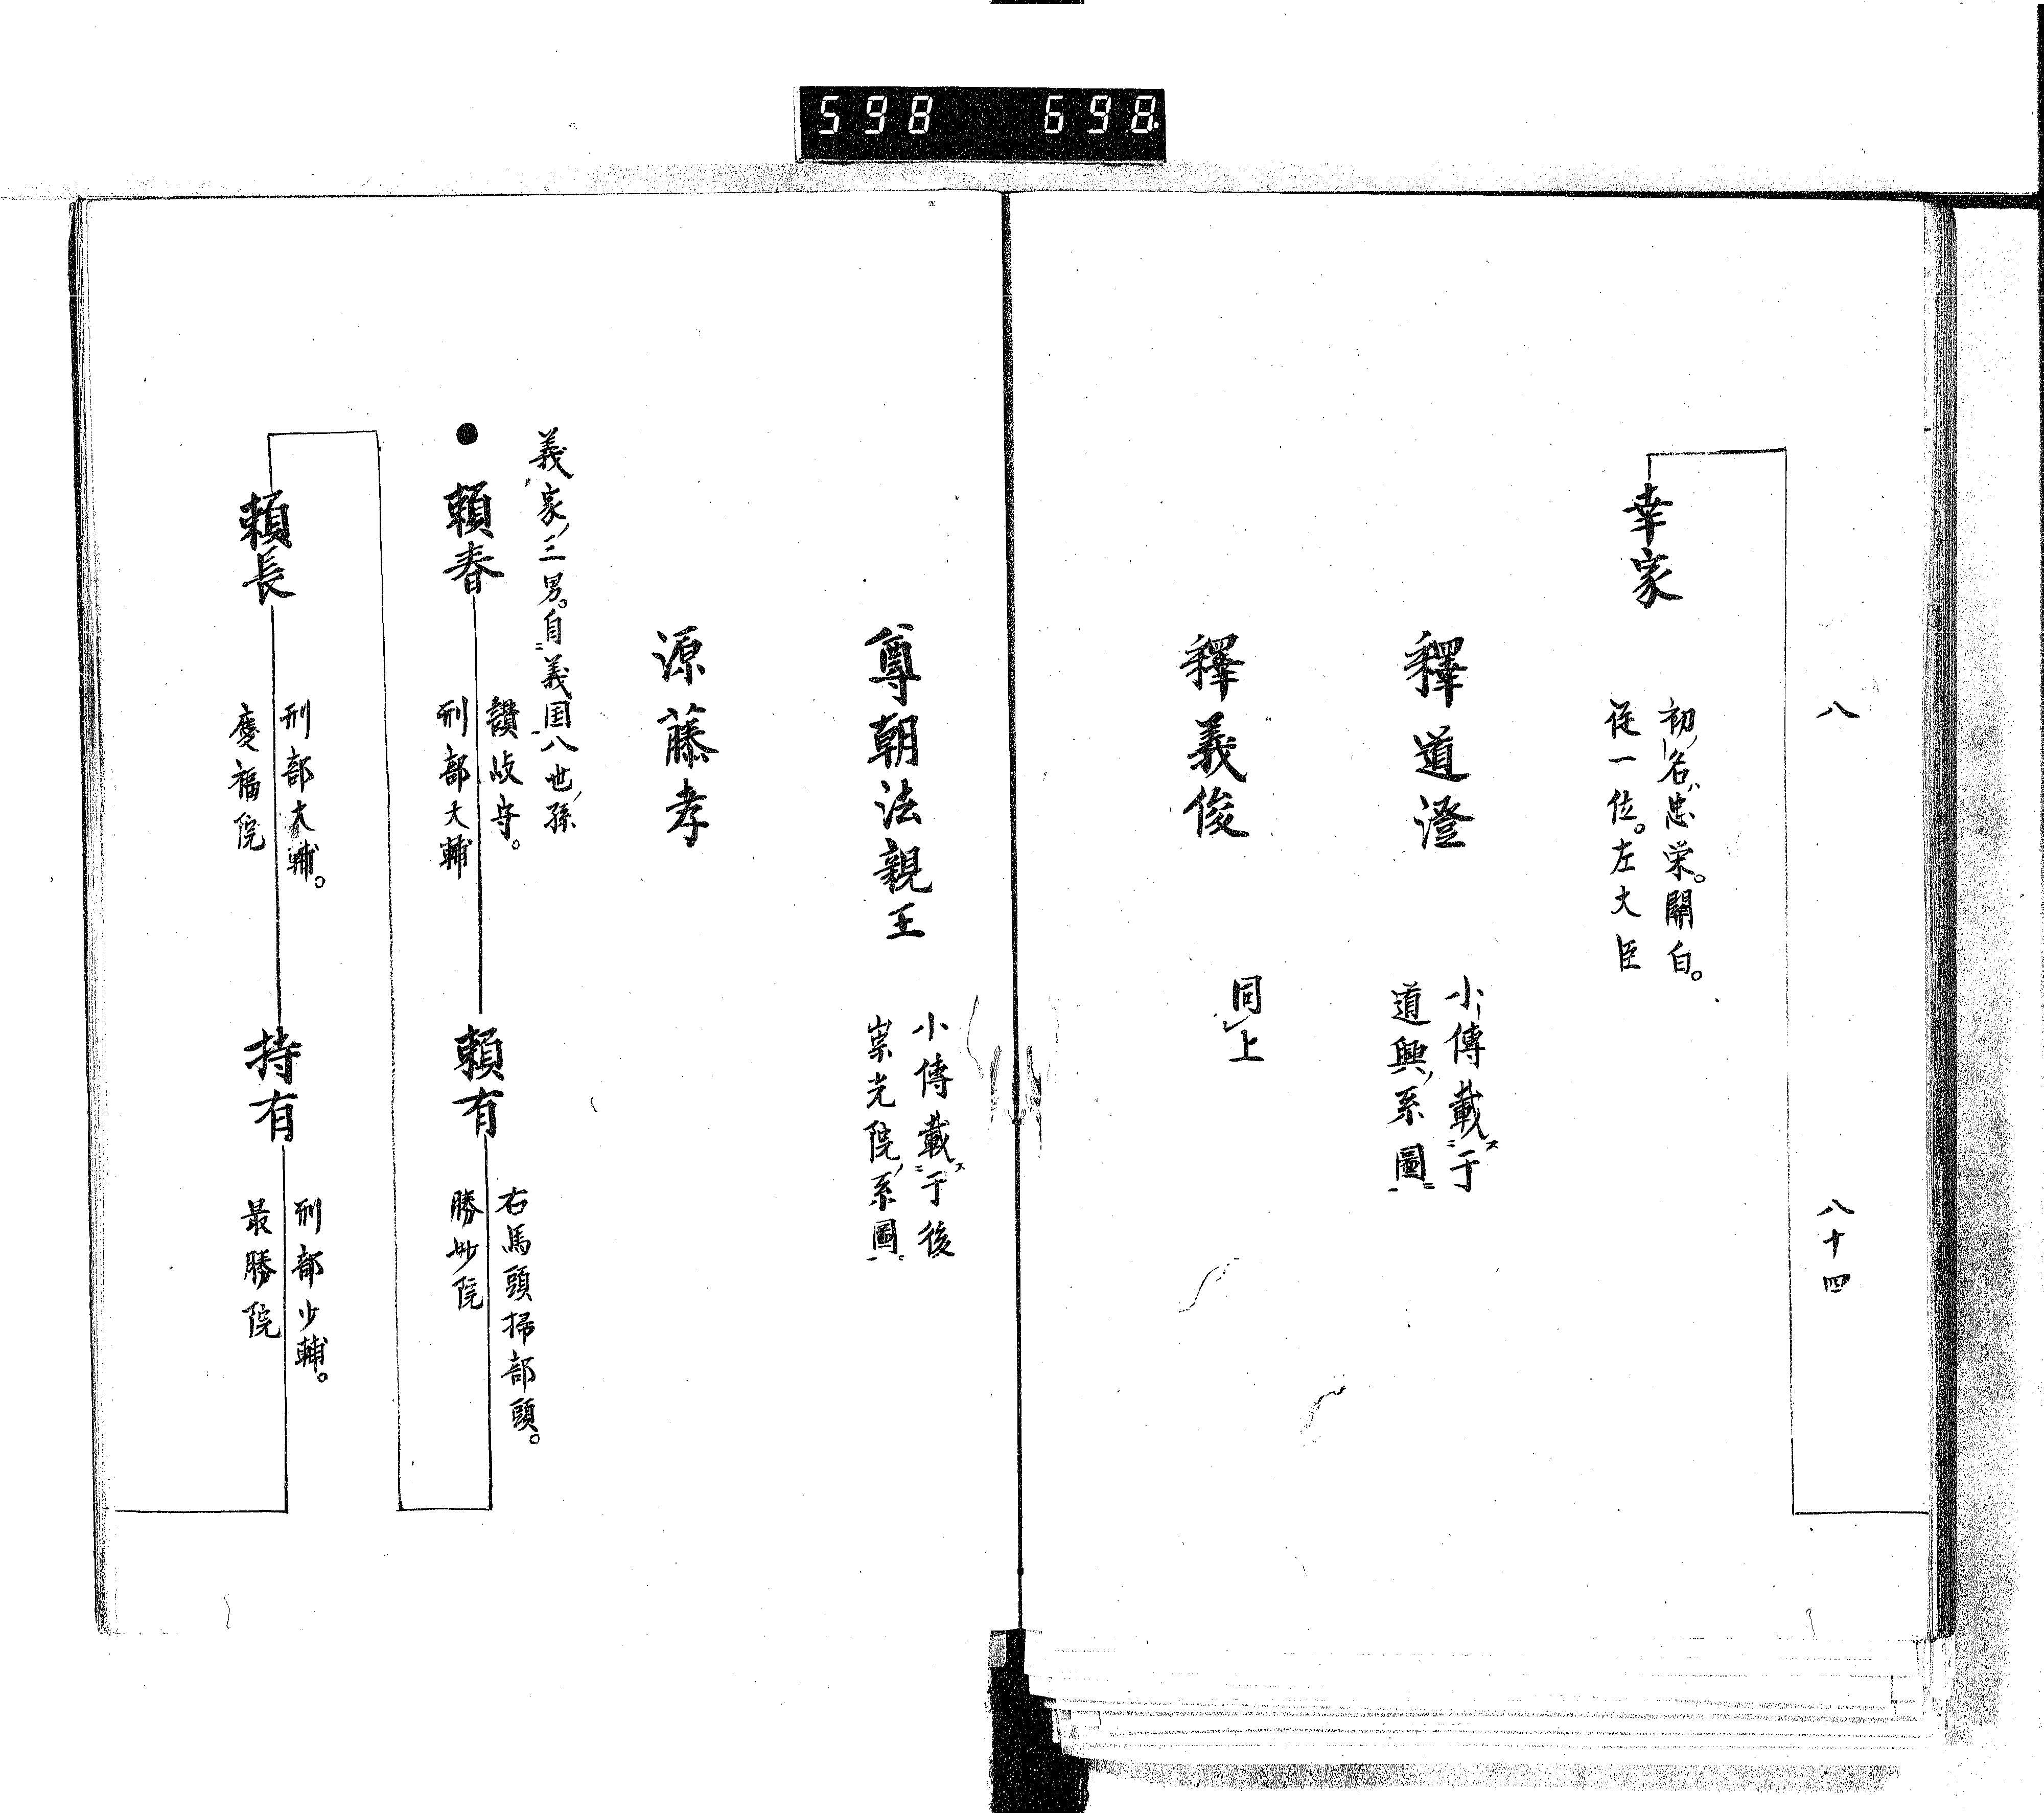 598 698
八 八十四
幸家
初名忠栄。關白。
從一位。左大臣
釋道澄
小傳載于
道興系圖
釋義俊
同上
尊朝法親王
小傳載于後
崇光院系圖
源藤孝
義家三男。自義国八世孫
●頼春
讃岐守。
刑部大輔
頼有
右馬頭掃部頭。
勝妙院
頼長
刑部大輔。
慶福院
持有
刑部少輔。
最勝院